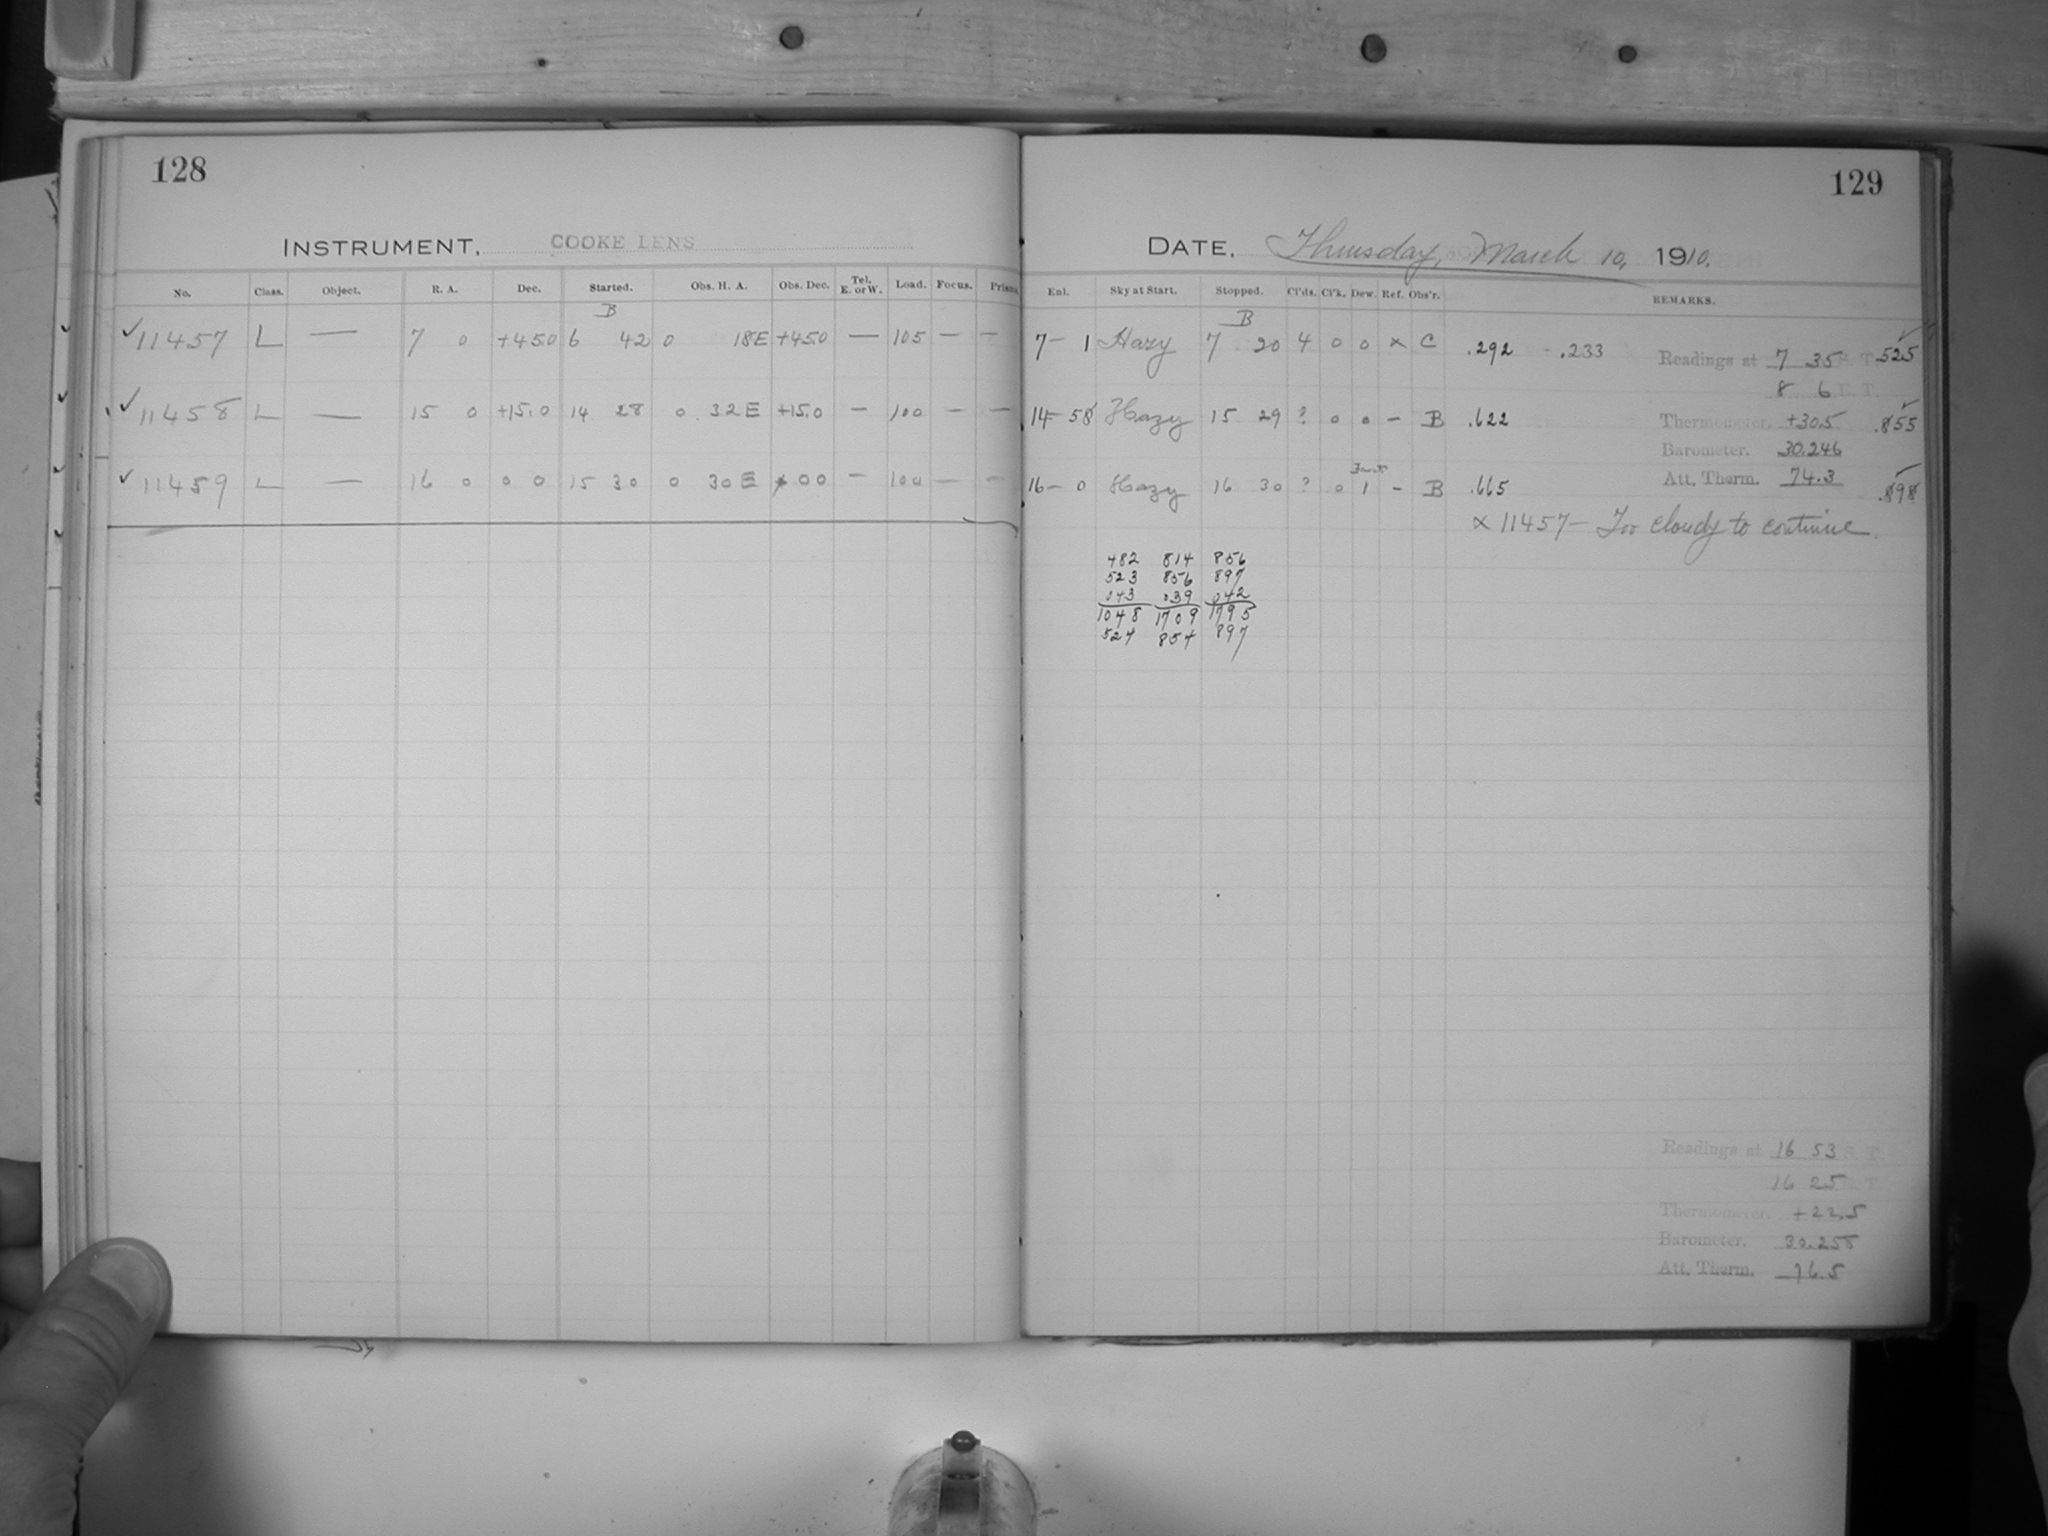 128
INSTRUMENT, COOKE LENS
No. Class. Object. R. A. Dec. Started. Obs. H. A. Obs. Dec. Tel. E. or W. Load. Focus. Prisms
B
✓11457 L — 7 0 +45.0 6 42 0 18E +45.0 — 105 — —
✓11458 L — 15 0 +15.0 14 28 0 32E +15.0 — 100 — —
✓11459 L — 16 0 0 0 15 30 0 30E 00 — 100 — —
129
DATE, Thursday, March 10, 1910.
Enl. Sky at Start. Stopped. Cl'ds. Cl'k. Dew. Ref. Obs'r. REMARKS.
B
7— 1 Hazy 7 20 4 0 0 × C .292 - .233
Readings at 7 35 S. T. .525
8 6 E. T.
14— 58 Hazy 15 29 ? 0 0 — B .622
Thermometer. +30.5 .855
Barometer. 30.246
16— 0 Hazy 16 30 ? 0 1 — B .665
Att. Therm. 74.3 .898
× 11457— Too cloudy to continue.
482 814 856
523 856 897
043 039 042
1048 1709 1795
524 854 897
Readings at 16 53 S. T.
16 25 E. T.
Thermometer. +22.5
Barometer. 30.258
Att. Therm. 76.5